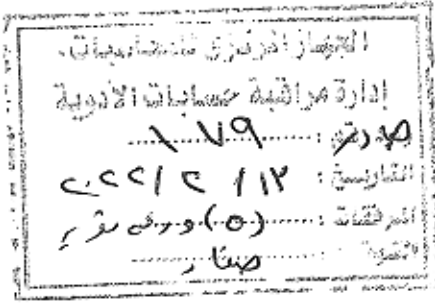 الجهاز المركزي للمحاسبات
إدارة مراقبة حسابات الأدوية
صدر رقم : ١٧٩
التاريخ : ١٣ / ٢ / ٢٠٢٢
المرفقات : (٥) ورقه